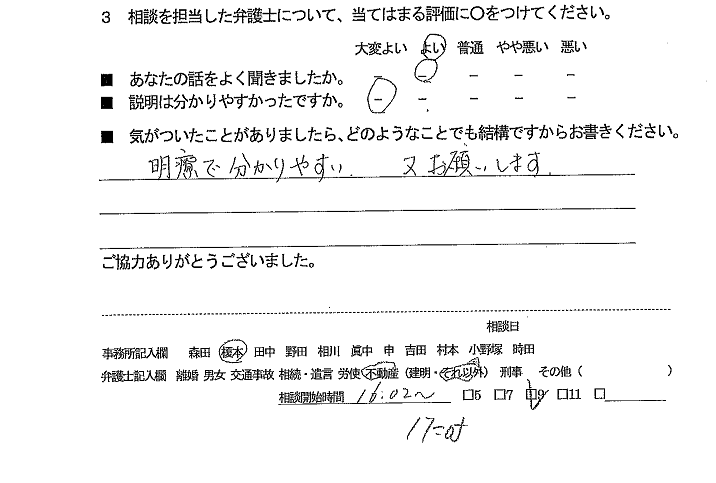 3 相談を担当した弁護士について、当てはまる評価に○をつけてください。
大変よい よい 普通 やや悪い 悪い
■ あなたの話をよく聞きましたか。 － － － － －
■ 説明は分かりやすかったですか。 － － － － －
■ 気がついたことがありましたら、どのようなことでも結構ですからお書きください。
明瞭で分かりやすい. 又お願いします.
ご協力ありがとうございました。
相談日
事務所記入欄 森田 榎本 田中 野田 相川 眞中 申 吉田 村本 小野塚 時田
弁護士記入欄 離婚 男女 交通事故 相続・遺言 労使 不動産 (建明・それ以外) 刑事 その他 ( )
相談開始時間 16:02〜 □5 □7 □9 □11 □